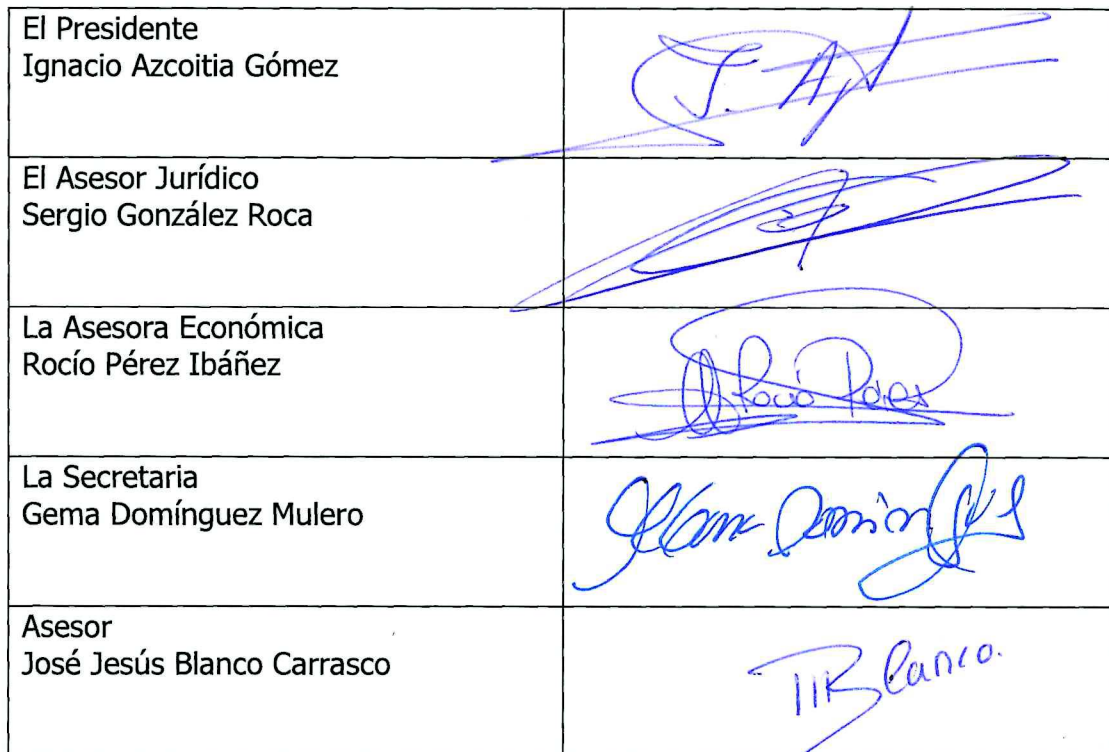 El Presidente
Ignacio Azcoitia Gómez
El Asesor Jurídico
Sergio González Roca
La Asesora Económica
Rocío Pérez Ibáñez
Rocío Pérez
La Secretaria
Gema Domínguez Mulero
Asesor
José Jesús Blanco Carrasco
Blanco.